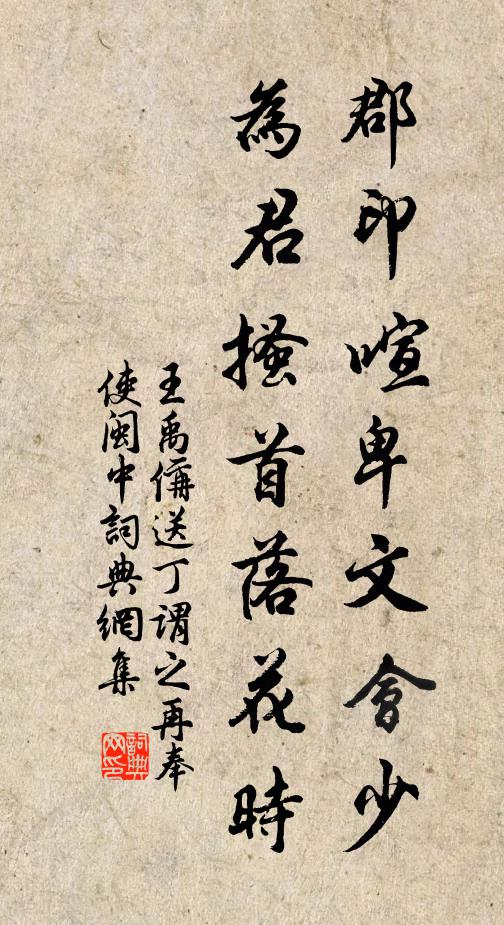 郡印喧卑文會少
為君搔首落花時
王禹偁送丁謂之再奉
使閩中詞典網集
詞典網印